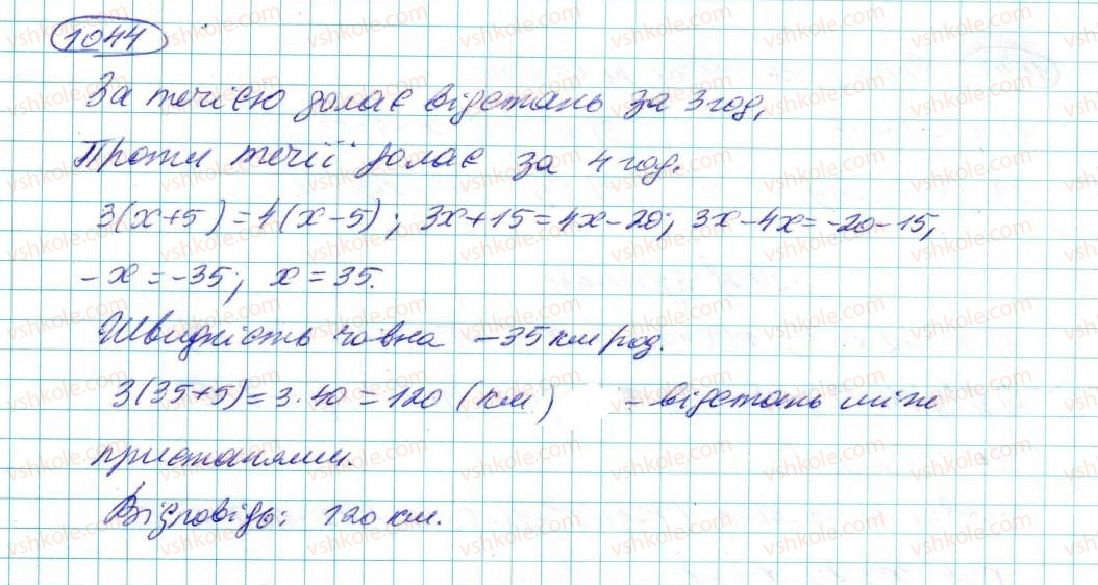 1044
За течією долає відстань за 3 год,
Проти течії долає за 4 год.
3(x+5)=4(x-5); 3x+15=4x-20; 3x-4x=-20-15,
-x=-35; x=35.
Швидкість човна - 35 км/год.
3(35+5)=3·40=120 (км) - відстань між
пристанями.
Відповідь: 120 км.